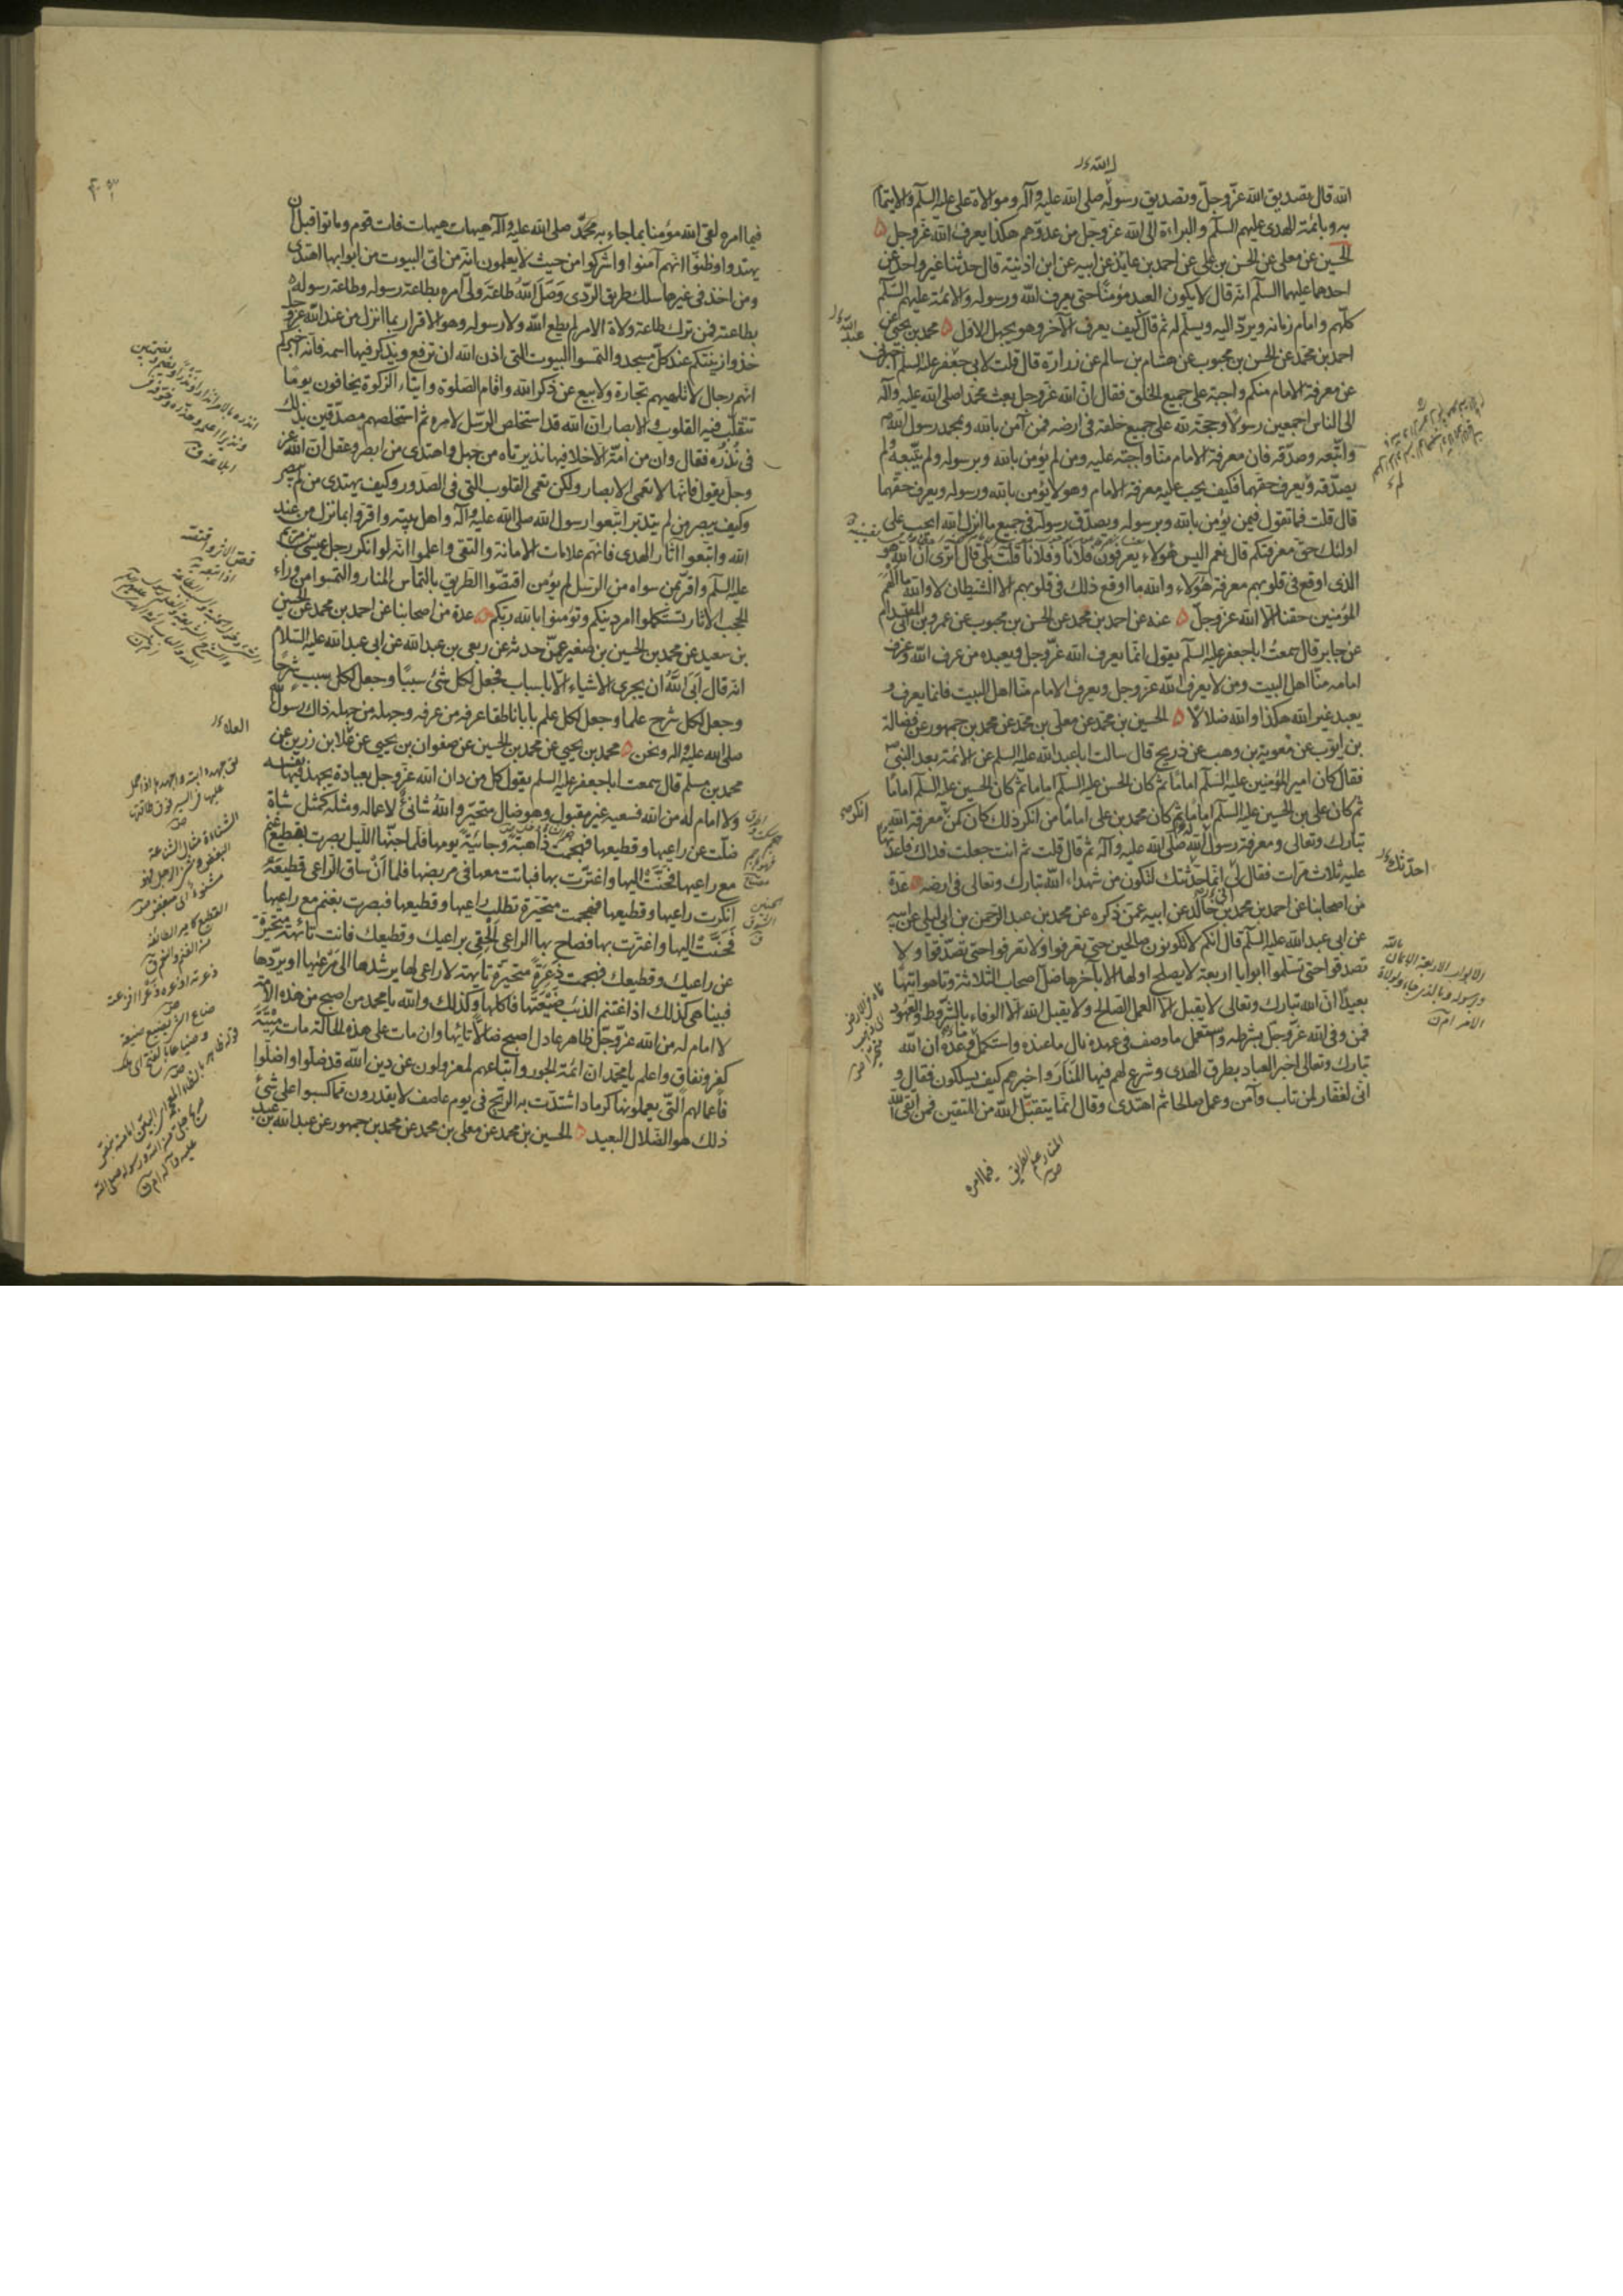 الله قال تصديق الله عز وجل وتصديق رسوله صلى الله عليه وآله وموالاة على عليه السلم والايتمام
به وبائمة الهدى عليهم السلم والبراءة الى الله عز وجل من عدوهم هكذا يعرف الله عز وجل
الحسين عن معلى عن الحسن بن على عن احمد بن عايذ عن ابيه عن ابن اذينة قال حدثنا غير واحد عن
احدهما عليهما السلم انه قال لا يكون العبد مؤمنا حتى يعرف الله ورسوله والائمة عليهم السلم
كلهم وامام زمانه ويرد اليه ويسلم له ثم قال كيف يعرف الآخر وهو يجهل الاول محمد بن يحيى عن
احمد بن محمد عن الحسن بن محبوب عن هشام بن سالم عن زرارة قال قلت لابى جعفر عليه السلم اخبرنى
عن معرفة الامام منكم واجبة على جميع الخلق فقال ان الله عز وجل بعث محمدا صلى الله عليه وآله
الى الناس اجمعين رسولا وحجة لله على جميع خلقه فى ارضه فمن آمن بالله وبمحمد رسول الله
واتبعه وصدقه فان معرفة الامام منا واجبة عليه ومن لم يؤمن بالله وبرسوله ولم يتبعه ولم
يصدقه ويعرف حقهما فكيف يجب عليه معرفة الامام وهو لا يؤمن بالله ورسوله ويعرف حقهما
قال قلت فما تقول فيمن يؤمن بالله وبرسوله ويصدق رسوله فى جميع ما انزل الله ايجب على
اولئك حق معرفتكم قال نعم اليس هؤلاء يعرفون فلانا وفلانا قلت بلى قال اترى ان الله هو
الذى اوقع فى قلوبهم معرفة هؤلاء والله ما اوقع ذلك فى قلوبهم الا الشيطان لا والله ما الهم
المؤمنين حقنا الا الله عز وجل عنه عن احمد بن محمد عن الحسن بن محبوب عن عمرو بن ابى المقدام
عن جابر قال سمعت ابا جعفر عليه السلم يقول انما يعرف الله عز وجل ويعبده من عرف الله وعرف
امامه منا اهل البيت ومن لا يعرف الله عز وجل ويعرف الامام منا اهل البيت فانما يعرف و
يعبد غير الله هكذا والله ضلالا الحسين بن محمد عن معلى بن محمد عن محمد بن جمهور عن فضالة
بن ايوب عن معوية بن وهب عن ذريح قال سالت ابا عبد الله عليه السلم عن الائمة بعد النبى
فقال كان امير المؤمنين عليه السلم اماما ثم كان الحسن عليه السلم اماما ثم كان الحسين عليه السلم اماما
ثم كان على بن الحسين عليه السلم اماما ثم كان محمد بن على اماما من انكر ذلك كان كمن انكر معرفة الله
تبارك وتعالى ومعرفة رسول الله صلى الله عليه وآله ثم قال قلت ثم انت جعلت فداك فاعدتها
عليه ثلاث مرات فقال لى انما حدثتك لتكون من شهداء الله تبارك وتعالى فى ارضه عدة
من اصحابنا عن احمد بن محمد بن خالد عن ابيه عمن ذكره عن محمد بن عبد الرحمن بن ابى ليلى عن ابيه
عن ابى عبد الله عليه السلم قال انكم لا تكونون صالحين حتى تعرفوا ولا تعرفوا حتى تصدقوا ولا
تصدقوا حتى تسلموا ابوابا اربعة لا يصلح اولها الا بآخرها ضل اصحاب الثلاثة وتاهوا تيها
بعيدا ان الله تبارك وتعالى لا يقبل الا العمل الصالح ولا يقبل الله الا الوفاء بالشروط والعهود
فمن وفى لله عز وجل بشرطه واستعمل ما وصف فى عهده نال ما عنده واستكمل وعده ان الله
تبارك وتعالى اخبر العباد بطرق الهدى وشرع لهم فيها المنار واخبرهم كيف يسلكون فقال و
انى لغفار لمن تاب وآمن وعمل صالحا ثم اهتدى وقال انما يتقبل الله من المتقين فمن اتقى الله
فيما امره
فيما امره لقى الله مؤمنا بما جاء به محمد صلى الله عليه وآله هيهات هيهات فات قوم وماتوا قبل ان
يهتدوا وظنوا انهم آمنوا واشركوا من حيث لا يعلمون انه من اتى البيوت من ابوابها اهتدى
ومن اخذ فى غيرها سلك طريق الردى وصل الله طاعة ولى امره بطاعة رسوله وطاعة رسوله
بطاعته فمن ترك طاعة ولاة الامر لم يطع الله ولا رسوله وهو الاقرار بما انزل من عند الله عز وجل
خذوا زينتكم عند كل مسجد والتمسوا البيوت التى اذن الله ان ترفع ويذكر فيها اسمه فانه اخبركم
انهم رجال لا تلهيهم تجارة ولا بيع عن ذكر الله واقام الصلوة وايتاء الزكوة يخافون يوما
تتقلب فيه القلوب والابصار ان الله قد استخلص الرسل لامره ثم استخلصهم مصدقين بذلك
فى نذره فقال وان من امة الا خلا فيها نذير تاه من جهل واهتدى من ابصر وعقل ان الله عز
وجل يقول فانها لا تعمى الابصار ولكن تعمى القلوب التى فى الصدور وكيف يهتدى من لم يبصر
وكيف يبصر من لم يتدبر اتبعوا رسول الله صلى الله عليه وآله واهل بيته واقروا بما نزل من عند
الله واتبعوا اثار الهدى فانهم علامات الامانة والتقى واعلموا انه لو انكر رجل عيسى بن مريم
عليه السلم واقر بمن سواه من الرسل لم يؤمن اقتصوا الطريق بالتماس المنار والتمسوا من وراء
الحجب الآثار تستكملوا امر دينكم وتؤمنوا بالله ربكم عدة من اصحابنا عن احمد بن محمد عن الحسين
بن سعيد عن محمد بن الحسين بن صغير عمن حدثه عن ربعى بن عبد الله عن ابى عبد الله عليه السلام
انه قال ابى الله ان يجرى الاشياء الا باسباب فجعل لكل شئ سببا وجعل لكل سبب شرحا
وجعل لكل شرح علما وجعل لكل علم بابا ناطقا عرفه من عرفه وجهله من جهله ذاك رسول الله
صلى الله عليه واله ونحن محمد بن يحيى عن محمد بن الحسين عن صفوان بن يحيى عن علا بن رزين عن
محمد بن مسلم قال سمعت ابا جعفر عليه السلم يقول كل من دان الله عز وجل بعبادة يجهد فيها نفسه
ولا امام له من الله فسعيه غير مقبول وهو ضال متحير والله شانئ لاعماله ومثله كمثل شاة
ضلت عن راعيها وقطيعها فهجمت ذاهبة وجائية يومها فلما جنها الليل بصرت بقطيع غنم
مع راعيها فحنت اليها واغترت بها فباتت معها فى مربضها فلما ان ساق الراعى قطيعه
انكرت راعيها وقطيعها فهجمت متحيرة تطلب راعيها وقطيعها فبصرت بغنم مع راعيها
فحنت اليها واغترت بها فصاح بها الراعى الحقى براعيك وقطيعك فانت تائهة متحيرة
عن راعيك وقطيعك فهجمت ذعرة متحيرة تايهة لا راعى لها يرشدها الى مرعيها او يردها
فبينا هى كذلك اذا اغتنم الذئب ضيعتها فاكلها وكذلك والله يا محمد من اصبح من هذه الامة
لا امام له من الله عز وجل ظاهر عادل اصبح ضالا تائها وان مات على هذه الحالة مات ميتة
كفر ونفاق واعلم يا محمد ان ائمة الجور واتباعهم لمعزولون عن دين الله قد ضلوا واضلوا
فاعمالهم التى يعملونها كرماد اشتدت به الريح فى يوم عاصف لا يقدرون مما كسبوا على شئ
ذلك هو الضلال البعيد الحسين بن محمد عن معلى بن محمد عن محمد بن جمهور عن عبد الله بن عبد